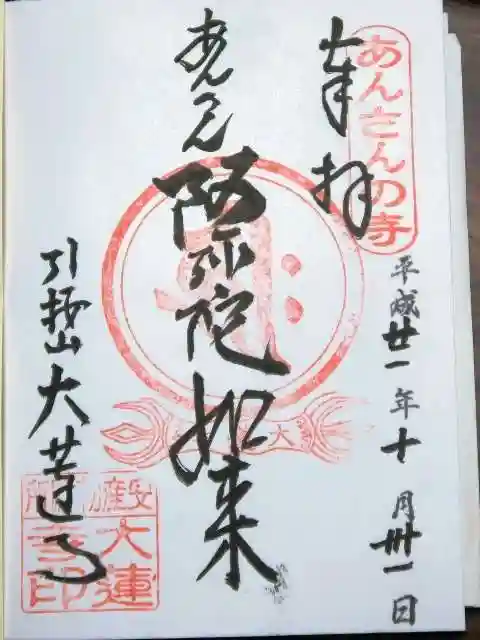 あんさんの寺
奉拝
平成廿一年十月卅一日
あんさん
阿弥陀如来
引接山大蓮寺
大蓮
寺印